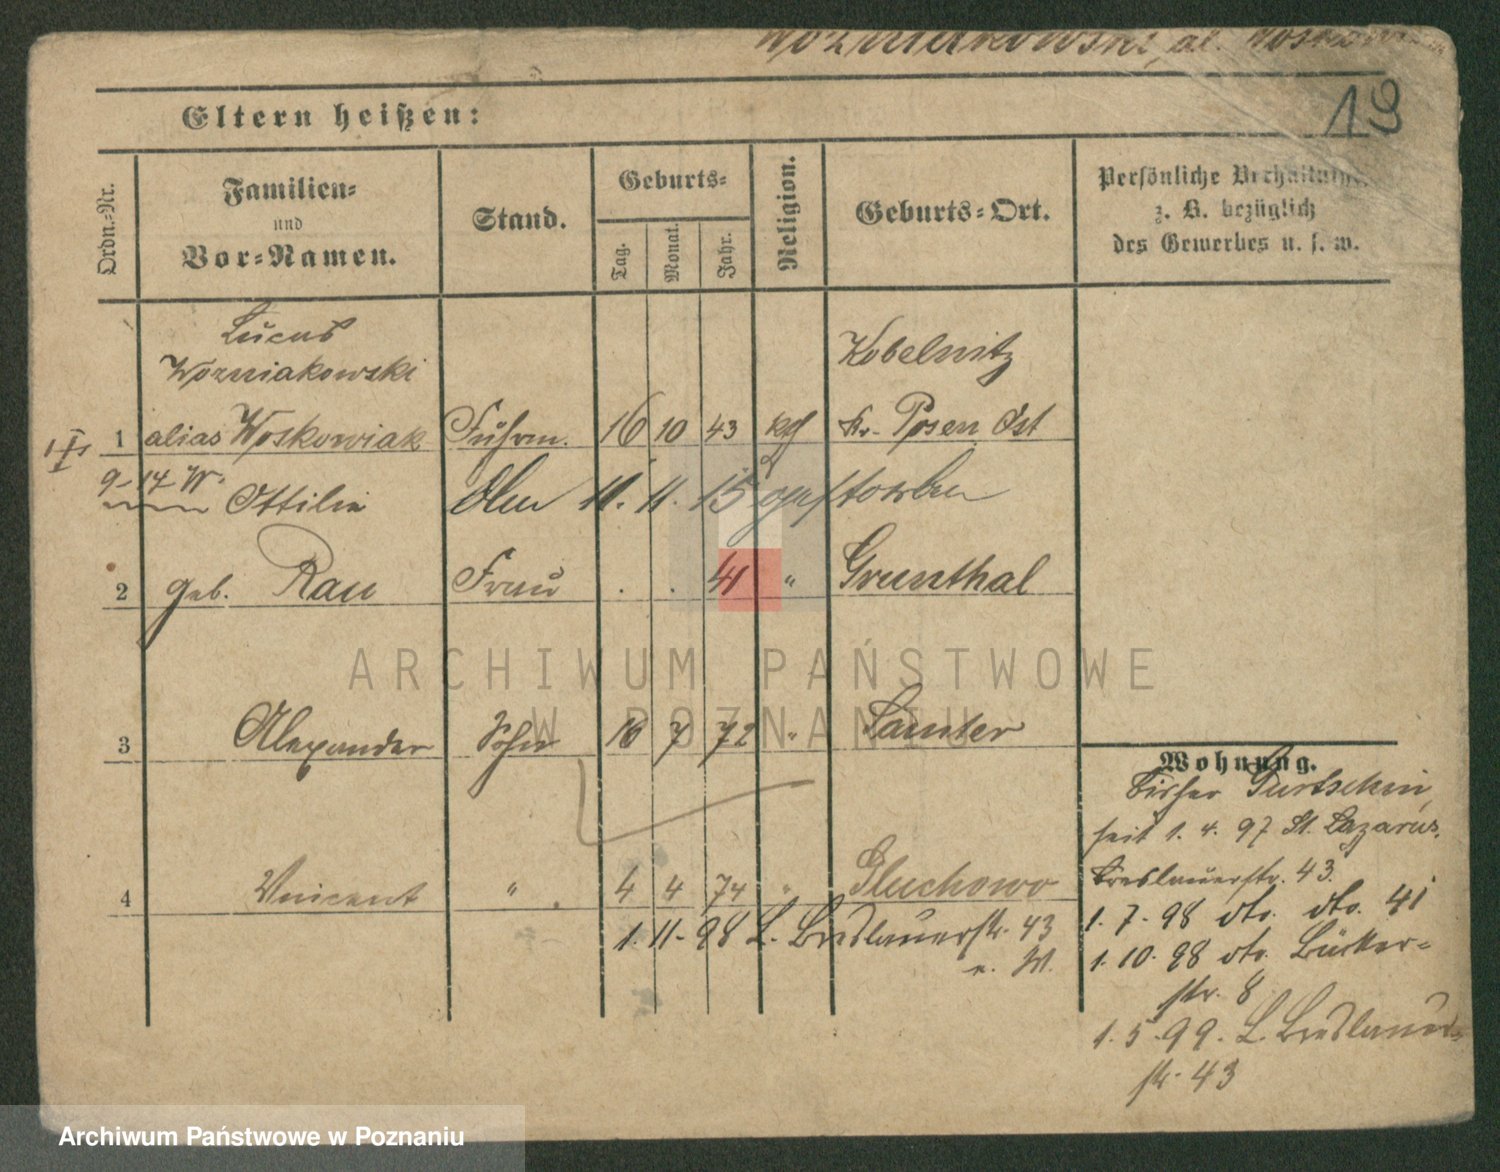 Wozniakowski, al. Woskowiak
19
Eltern heißen:
Ordn.=Nr.
Familien=
und
Vor=Namen.
Stand.
Geburts=
Tag.
Monat.
Jahr.
Religion.
Geburts=Ort.
Persönliche Verhältnisse
z. B. bezüglich
des Gewerbes u. s. w.
Lucas
Wozniakowski
1 alias Woskowiak Fuhrm. 16 10 43 kth
Kobelnitz
Kr. Posen Ost
9-14 W.
Ottilie
den 11. 11. 15 gestorben
2 geb. Rau Frau . . 41 " Grunthal
3 Alexander Sohn 16 7 72 " Samter
4 Vincent " 4 4 74 " Gluchowo
1. 11. 98 L. Breslauerstr. 43
v. W.
Wohnung.
Bisher Gurtschin,
seit 1. 4. 97 St. Lazarus,
Breslauerstr. 43.
1. 7. 98 dto. dto. 41
1. 10. 98 dto. Bäcker=
str. 8
1. 5. 99. L. Breslauer=
str. 43
ARCHIWUM PAŃSTWOWE
W POZNANIU
Archiwum Państwowe w Poznaniu